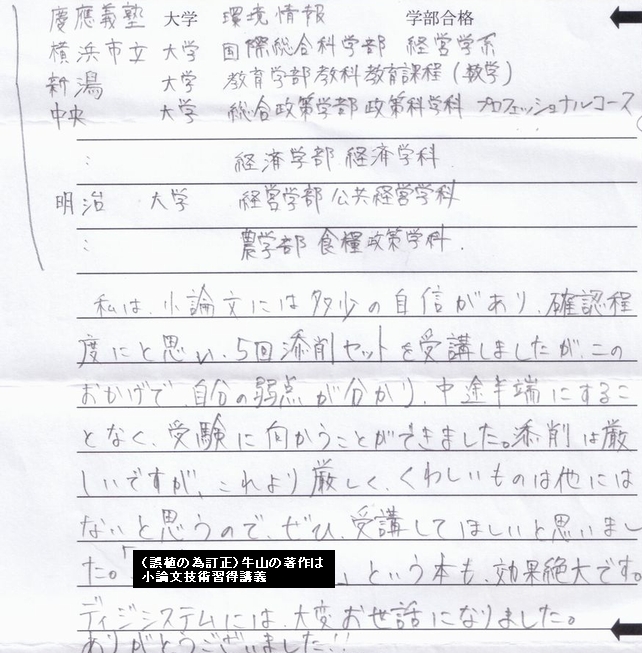 慶應義塾 大学 環境情報 学部合格
横浜市立 大学 国際総合科学部 経営学系
新潟 大学 教育学部教科教育課程(数学)
中央 大学 総合政策学部政策科学科 プロフェッショナルコース
: 経済学部 経済学科
明治 大学 経営学部公共経営学科
: 農学部 食糧政策学科.
私は、小論文には多少の自信があり、確認程
度にと思い、5回添削セットを受講しましたが、この
おかげで、自分の弱点が分かり、中途半端にするこ
となく、受験に向かうことができました。添削は厳
しいですが、これより厳しく、くわしいものは他には
ないと思うので、ぜひ、受講してほしいと思いまし
た。「(誤植の為訂正)牛山の著作は
小論文技術習得講義」という本も、効果絶大です。
ディジシステムには、大変お世話になりました。
ありがとうございました!!